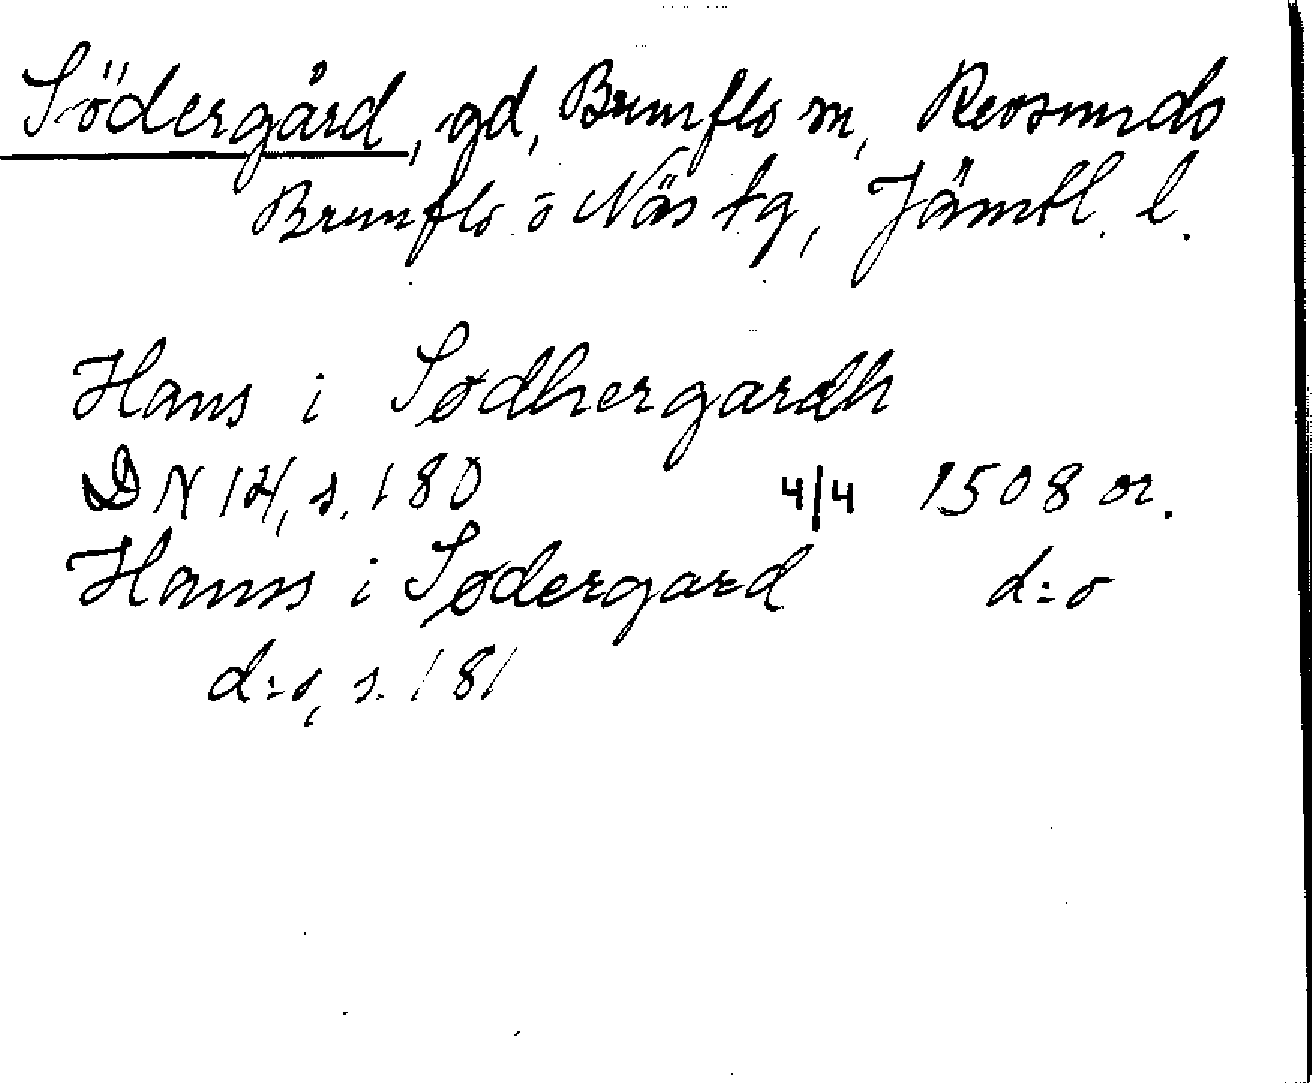 Södergård, gd, Brunflo sn, Revsunds
Brunflo o Näs tg, Jämtl. l.
Hans i Sødhergardh
DN 14, s. 180 4/4 1508 or.
Hanns i Sødergard d:o
d:o, s. 181